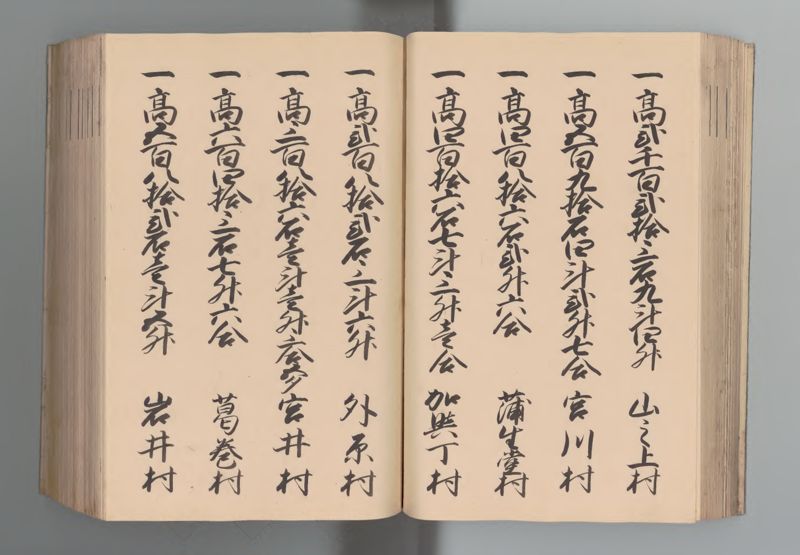 一高弐千百弐拾三石九斗四升 山之上村
一高五百九拾石四斗弐升七合 宮川村
一高四百八拾六石弐升六合 蒲生堂村
一高四百拾六石七斗三升壱合 加与丁村
一高弐百八拾弐石三斗六升 外原村
一高三百八拾六石壱斗壱升三合五夕 宮井村
一高六百四拾三石七升六合 葛巻村
一高五百八拾弐石壱斗五升 岩井村